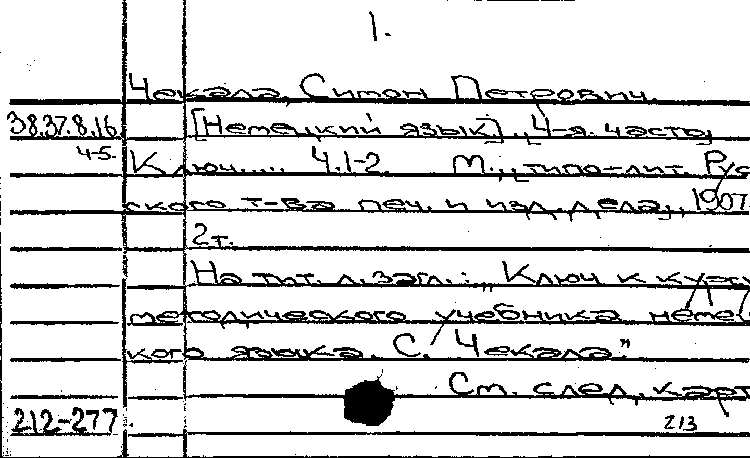 1.
Чекала, Симон Петрович.
38.37.8.16. [Немецкий язык]. 4-я. часть,
4-5. Ключ..... Ч.1-2. М., типо-лит. Рус
ского т-ва печ. и изд. дела, 1907.
2т.
На тит. л. загл.: „Ключ к
методического учебника немец
кого языка. С. Чекала."
См. след. карт
212-277. 213